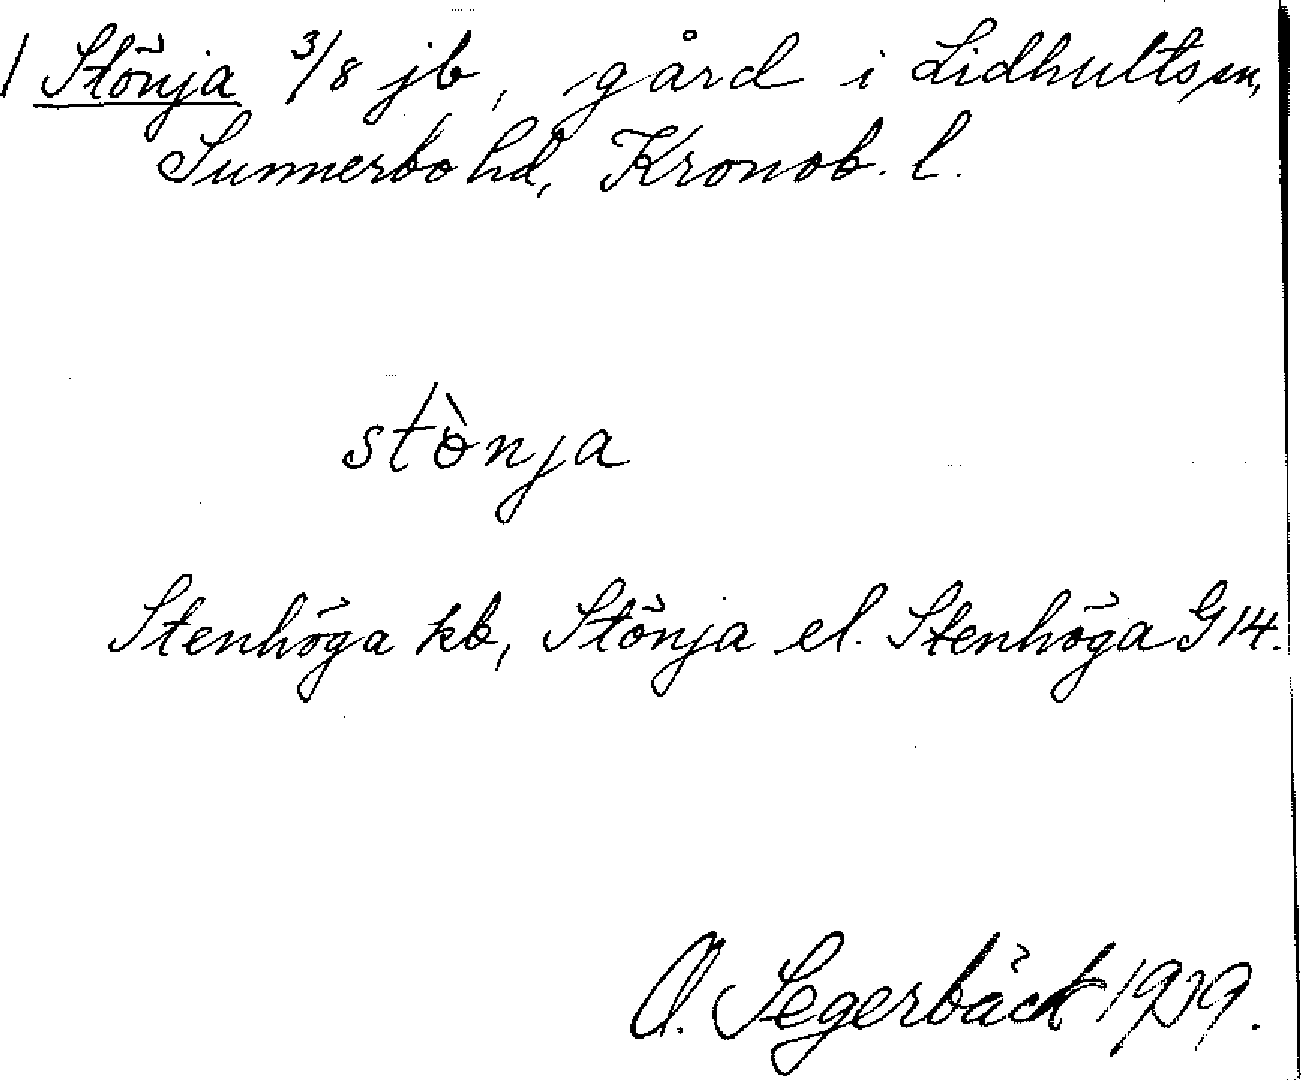 1 Stönja 3/8 jb, gård i Lidhults sn,
Sunnerbo hd, Kronob. l.
stònja
Stenhöga kb, Stönja el. Stenhöga G 14.
O. Segerbäck 1929.